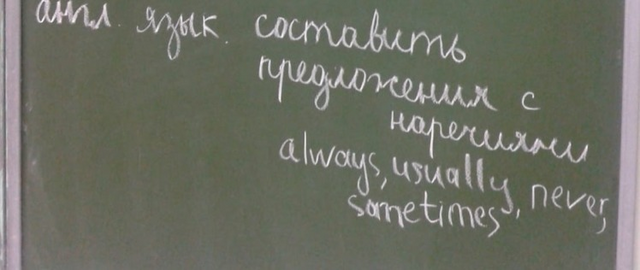 англ. язык. составить
предложения с
наречиями
always, usually, never,
sometimes,